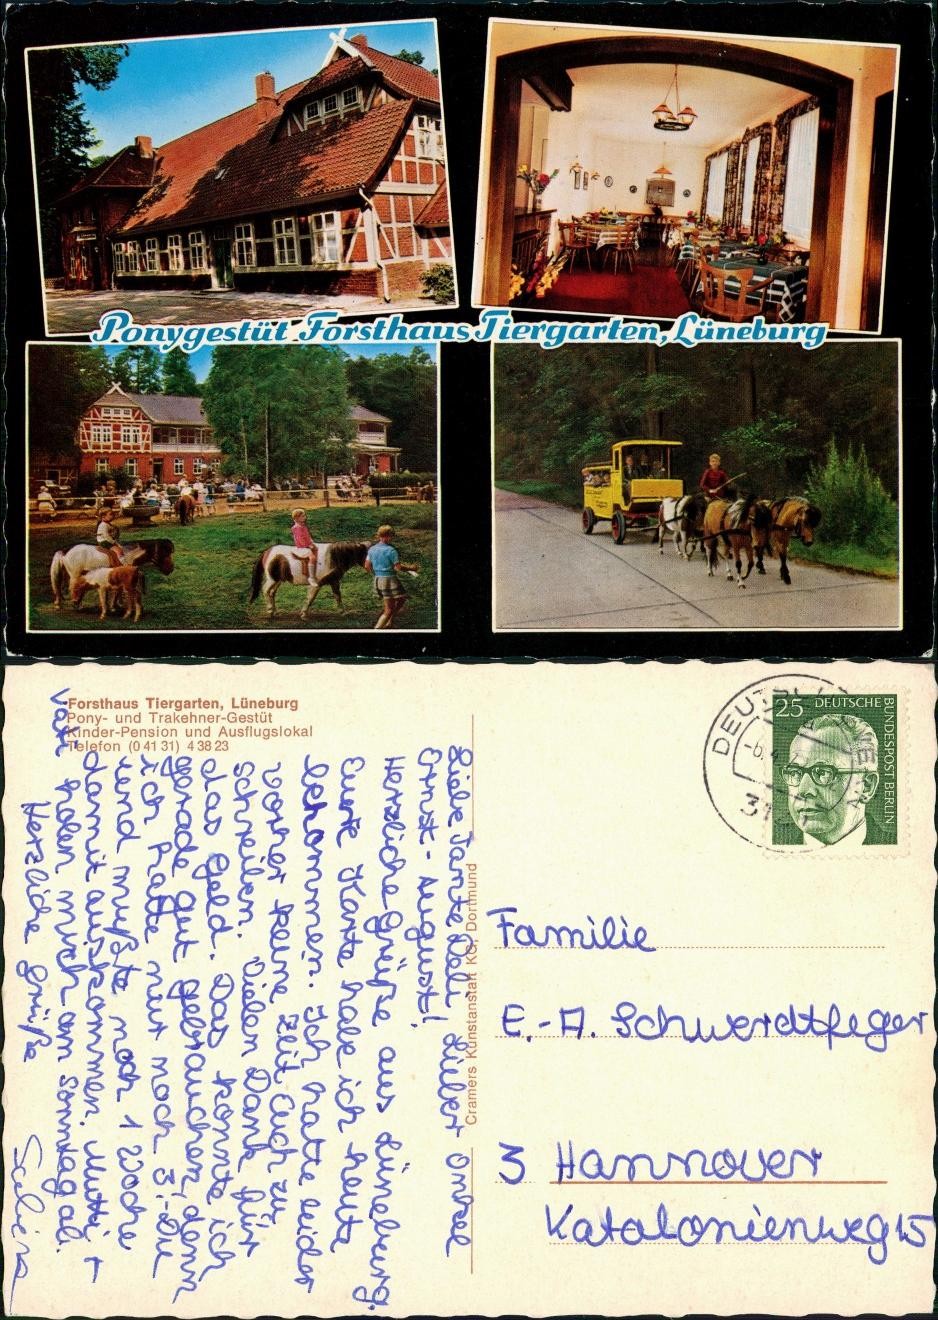 Ponygestüt Forsthaus Tiergarten, Lüneburg
Forsthaus Tiergarten, Lüneburg
Pony- und Trakehner-Gestüt
Kinder-Pension und Ausflugslokal
Telefon (0 41 31) 4 38 23
Liebe Tante Deli, lieber Onkel
Ernst-August!
Herzliche Grüße aus Lüneburg.
Eure Karte habe ich heute
bekommen. Ich hatte leider
vorher keine Zeit Euch zu
schreiben. Vielen Dank für
das Geld. Das konnte ich
gerade gut gebrauchen, denn
ich hatte nur noch 3,- DM
und mußte noch 1 Woche
damit auskommen. Mutti +
Vati holen mich am Sonntag ab.
Herzliche Grüße
Sabina
Cramers Kunstanstalt KG, Dortmund
25 DEUTSCHE
BUNDESPOST BERLIN
Familie
E.-A. Schwerdtfeger
3 Hannover
Katalonienweg 15